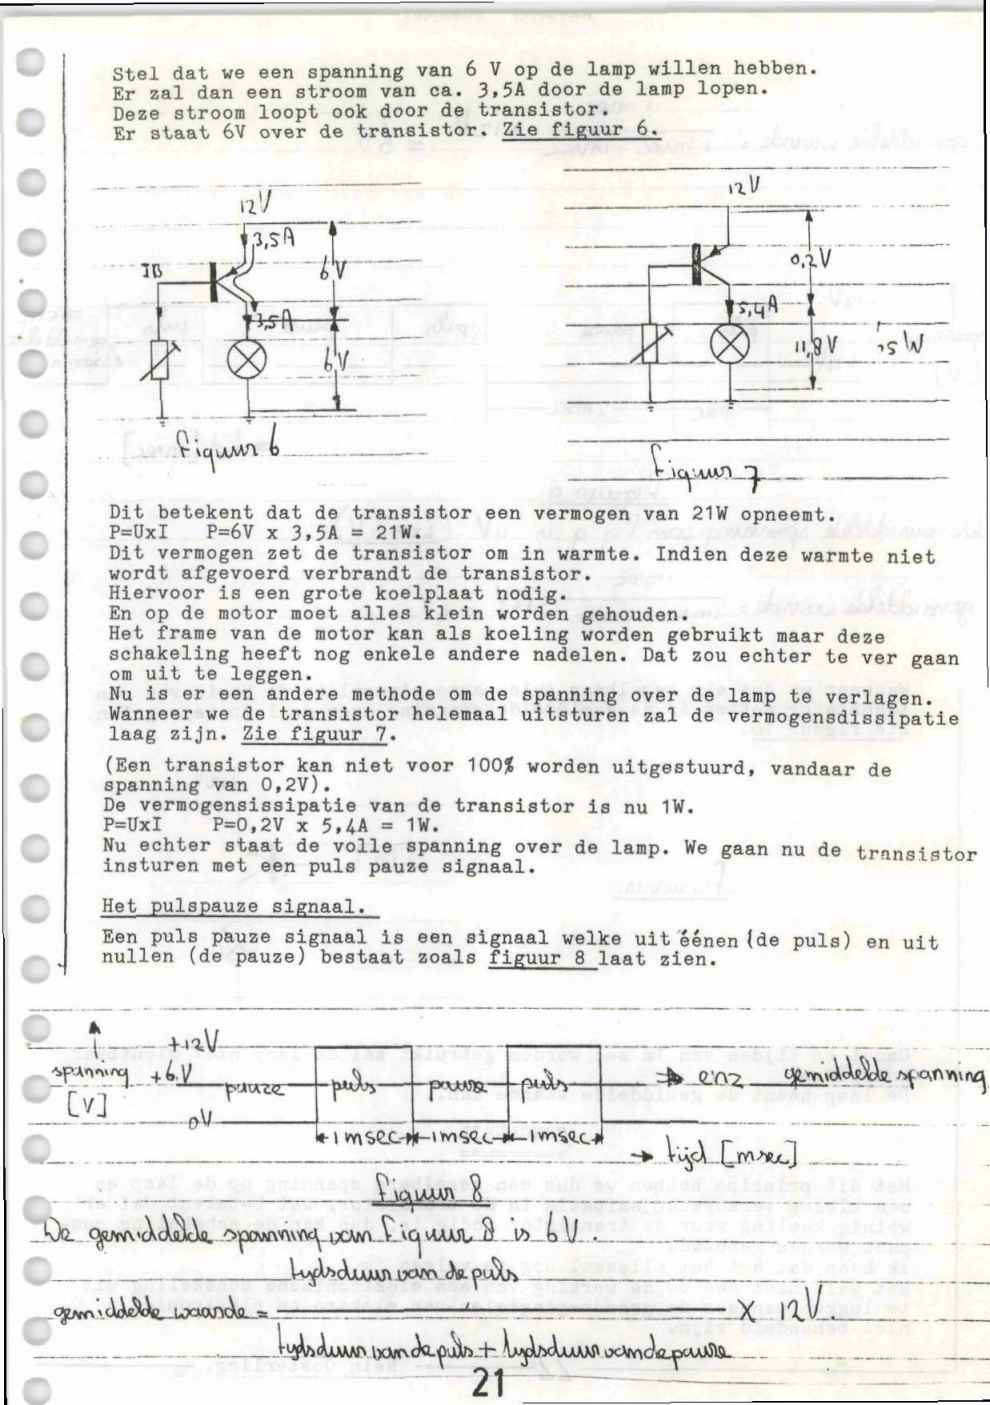 Stel dat we een spanning van 6 V op de lamp willen hebben.
Er zal dan een stroom van ca. 3,5A door de lamp lopen.
Deze stroom loopt ook door de transistor.
Er staat 6V over de transistor. Zie figuur 6.
12V
3,5A
IB
6V
3,5A
6V
Figuur 6
12V
0,2V
5,4A
11,8V
Figuur 7
Dit betekent dat de transistor een vermogen van 21W opneemt.
P=UxI P=6V x 3,5A = 21W.
Dit vermogen zet de transistor om in warmte. Indien deze warmte niet
wordt afgevoerd verbrandt de transistor.
Hiervoor is een grote koelplaat nodig.
En op de motor moet alles klein worden gehouden.
Het frame van de motor kan als koeling worden gebruikt maar deze
schakeling heeft nog enkele andere nadelen. Dat zou echter te ver gaan
om uit te leggen.
Nu is er een andere methode om de spanning over de lamp te verlagen.
Wanneer we de transistor helemaal uitsturen zal de vermogensdissipatie
laag zijn. Zie figuur 7.
(Een transistor kan niet voor 100% worden uitgestuurd, vandaar de
spanning van 0,2V).
De vermogensissipatie van de transistor is nu 1W.
P=UxI P=0,2V x 5,4A = 1W.
Nu echter staat de volle spanning over de lamp. We gaan nu de transistor
insturen met een puls pauze signaal.
Het pulspauze signaal.
Een puls pauze signaal is een signaal welke uit éénen (de puls) en uit
nullen (de pauze) bestaat zoals figuur 8 laat zien.
+12V
spanning +6V pauze puls pauze puls → enz gemiddelde spanning
[V]
0V
1msec 1msec 1msec
→ tijd [msec]
Figuur 8
De gemiddelde spanning van Figuur 8 is 6V.
tydsduur van de puls
gemiddelde waarde = X 12V.
tydsduur van de puls + tydsduur van de pauze
21